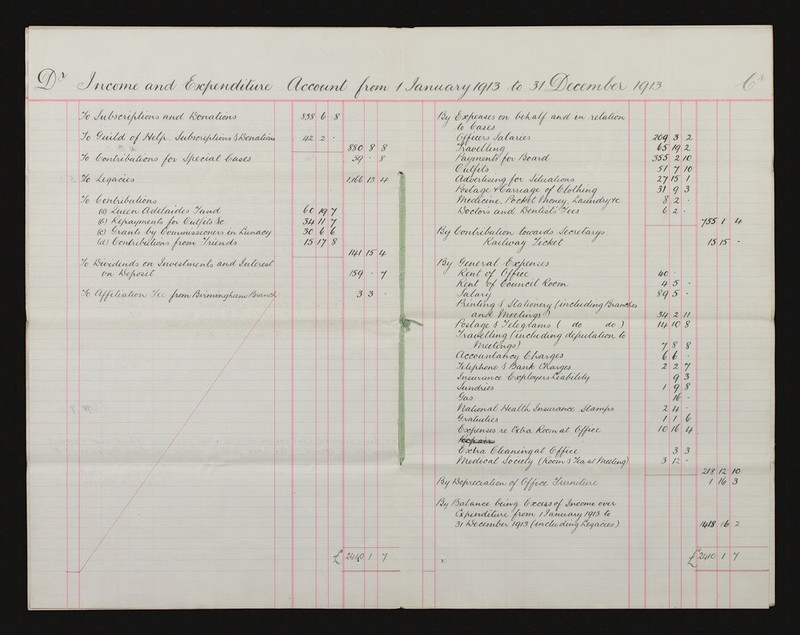 Dr Income and Expenditure Account from 1 January 1913 to 31 December 1913 Cr
To Subscriptions and Donations 838 6 8
To Guild of Help. Subscriptions & Donations 42 2 -
880 8 8
To Contributions for Special Cases 59 - 8
To Legacies 1166 13 4
To Contributions
(a) Queen Adelaides Fund 60 19 7
(b) Repayments for Outfits &c 34 11 7
(c) Grants by Commissioners in Lunacy 30 6 6
(d) Contributions from Friends 15 17 8
141 15 4
To Dividends on Investments and Interest
on Deposit 159 - 7
To Affiliation Fee from Birmingham Branch 3 3 -
£ 2410 1 7
By Expenses on behalf and in relation
to Cases
Officers Salaries 209 3 2
Travelling 65 19 2
Payments for Board 355 2 10
Outfits 51 7 10
Advertising for Situations 27 15 1
Postage & Carriage of Clothing 31 9 3
Medicine, Pocket Money, Laundry &c 8 2 -
Doctors and Dentists Fees 6 2 -
755 1 4
By Contribution towards Secretarys
Railway Ticket 15 15 -
By General Expenses
Rent of Office 40 -
Rent of Council Room 4 5 -
Salary 89 5 -
Printing & Stationery (including Branches
and Meetings) 34 2 11
Postage & Telegrams ( do do ) 14 10 8
Travelling (including deputation to
Meetings) 7 8 8
Accountancy Charges 6 6 -
Telephone & Bank Charges 2 2 7
Insurance Employers Liability 9 3
Sundries 1 9 8
Gas 16 -
National Health Insurance Stamps 2 4 -
Gratuities 1 1 6
Expenses re Extra Room at Office 10 16 4
Extra Cleaning at Office 3 3
Medical Society (Room & Tea at Meeting) 3 12 -
218 12 10
By Depreciation of Office Furniture 1 16 3
By Balance being Excess of Income over
Expenditure from 1 January 1913 to
31 December 1913 (including Legacies) 1418 16 2
£ 2410 1 7